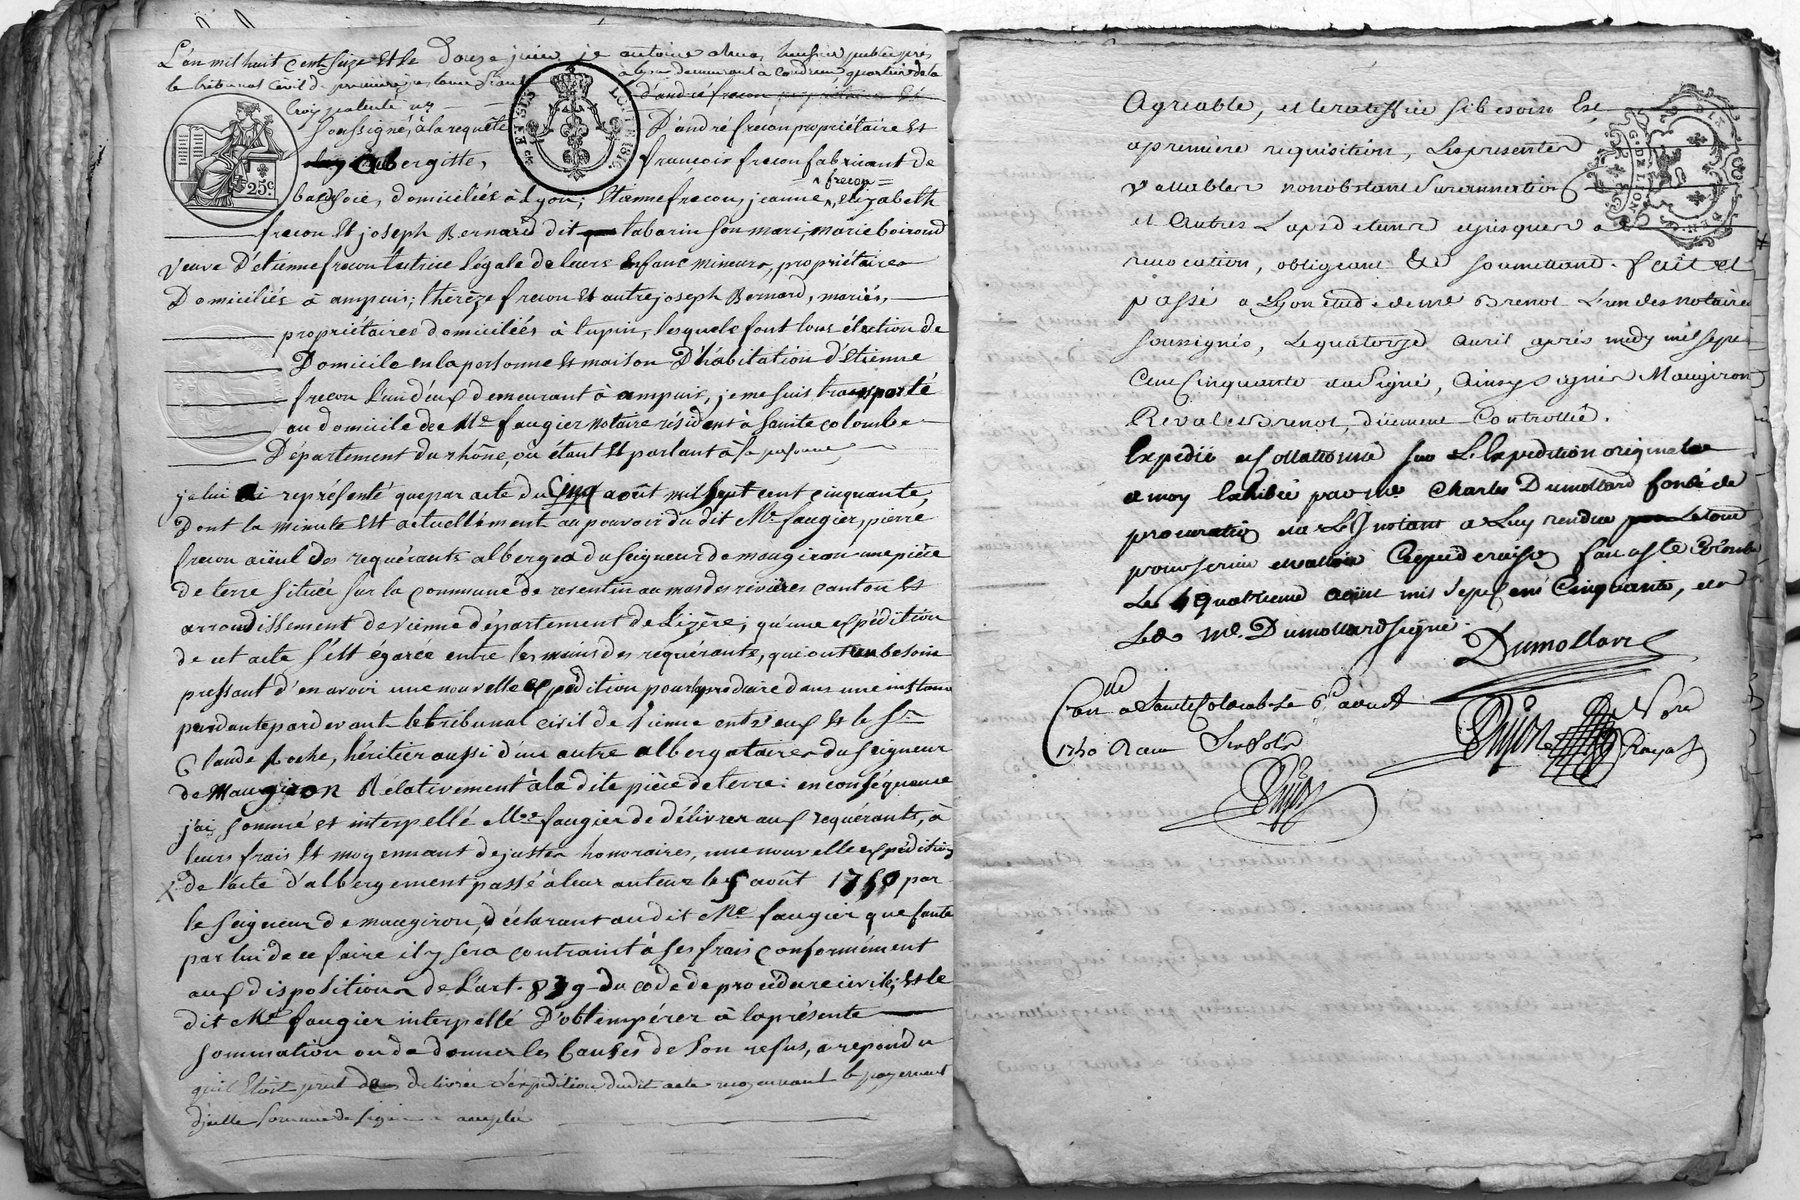 L'an mil huit cent seize et le Douze juin, je antoine huissier public près
le tribunal civil de première instance demeurant à Condrieu quartier de la
Croix patenté
d'andré frecon propriétaire et
soussigné, à la requête D'andré frecon propriétaire et
aubergiste, françois frecon fabricant de
25c.
bas de soie, domiciliés à Lyon; Etienne frecon, jeanne frecon, Elizabeth
frecon et joseph Bernard dit tabarin son mari, marie boiroud
veuve D'etienne frecon tutrice légale de leurs enfans mineurs, propriétaires
Domiciliés à ampuis; thérèze frecon et autre joseph Bernard, mariés,
propriétaires domiciliés à tupin, lesquels font tous élection de
Domicile en la personne et maison D'habitation d'Etienne
frecon l'un d'eux demeurant à ampuis, je me suis transporté
au domicile de Me faugier notaire résident à Sainte colombe
Département du rhône, où étant et parlant à sa personne,
je lui ai représenté que par acte du Cinq août mil sept cent cinquante,
Dont la minute est actuellement au pouvoir du dit Me faugier, pierre
frecon aïeul des requérants albergea du seigneur de maugiron une pièce
de terre située sur la commune de reventin au mas des rivières canton et
arrondissement de vienne département de Lizère; qu'une expédition
de cet acte s'est égarée entre les mains des requérants, qui ont un besoin
pressant d'en avoir une nouvelle expédition pour la produire dans une instance
pendante par devant le tribunal civil de vienne entr'eux et le Sr
Claude Roche, héritier aussi d'un autre albergataire du seigneur
de Maugiron Rélativement à la dite pièce de terre: en conséquence
j'ai sommé et interpellé Me faugier de délivrer aux requérants, à
leurs frais et moyennant de justes honoraires, une nouvelle expédition
de l'acte d'albergement passé à leur auteur le 5 août 1750 par
le seigneur de maugiron, déclarant au dit Me faugier que faute
par lui de ce faire il y sera contraint à ses frais conformément
aux dispositions de L'art. 839 du code de procédure civile; et le
dit Me faugier interpellé D'obtempérer à la présente
sommation ou de donner les Causes de son refus, a répondu
qu'il etoit prêt de délivrer l'expédition dudit acte moyennant le payement
d'icelle sommé de signer
Agréable, et le ratiffier si besoin Est,
a premiere requisition, Les presentes
vallables nonobstant Surannation
et autres Laps de tems et jusques a
revocation, obligeant &c soumettant. fait et
passé a Lyon étude de me Brenot L'un des notaires
soussignés, Le quatorze avril après midy mil sept
Cent Cinquante a Signé, Ainsy signé Maugiron
Brenot, düement Controllée.
Expedié et Collationné sur L'Expedition originale
a moy Exhibée par me Charles Dumollard fondé de
procuration
pour servir et valloir
Le Quatrieme aoust mil sept Cent Cinquante, et a
Led. Me. Dumollard signé.
Dumollard
Conlle a Sainte Colombe Le 6e aoust
1750 Six Sols
Royal